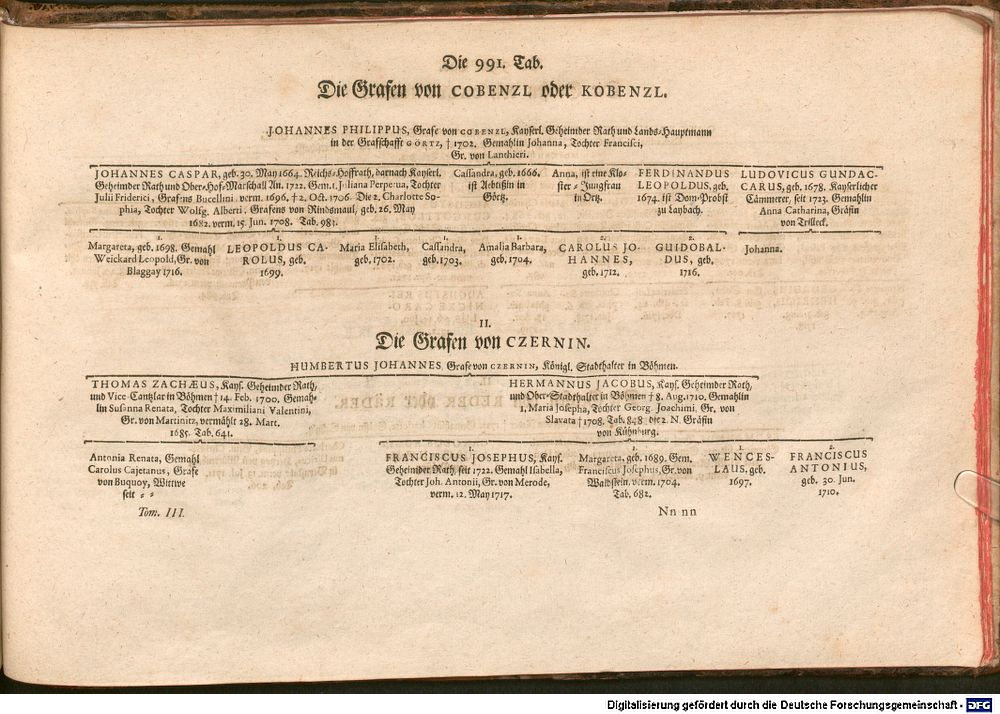 Die 991. Tab.
Die Grafen von COBENZL oder KOBENZL.
JOHANNES PHILIPPUS, Grafe von COBENZL, Kayserl. Geheimder Rath und Lands-Hauptmann
in der Grafschafft GÖRTZ, † 1702. Gemahlin Johanna, Tochter Francisci,
Gr. von Lanthieri.
JOHANNES CASPAR, geb. 30. May 1664. Reichs-Hoffrath, darnach Kayserl.
Geheimder Rath und Ober-Hof-Marschall An. 1722. Gem. 1. Juliana Perpetua, Tochter
Julii Friderici, Grafens Bucellini verm. 1696. † 2. Oct. 1706. Die 2. Charlotte So-
phia, Tochter Wolfg. Alberti, Grafens von Rindsmaul, geb. 26. May
1682. verm. 15. Jun. 1708. Tab. 983.
Cassandra, geb. 1666.
ist Aebtißin in
Görtz.
Anna, ist eine Klo-
ster-Jungfrau
in Ortz.
FERDINANDUS
LEOPOLDUS, geb.
1674. ist Dom-Probst
zu Laybach.
LUDOVICUS GUNDAC-
CARUS, geb. 1678. Kayserlicher
Cämmerer, seit 1723. Gemahlin
Anna Catharina, Gräfin
von Trilleck.
1.
Margareta, geb. 1698. Gemahl
Weickard Leopold, Gr. von
Blaggay 1716.
1.
LEOPOLDUS CA-
ROLUS, geb.
1699.
1.
Maria Elisabeth,
geb. 1702.
1.
Cassandra,
geb. 1703.
1.
Amalia Barbara,
geb. 1704.
2.
CAROLUS JO-
HANNES,
geb. 1712.
2.
GUIDOBAL-
DUS, geb.
1716.
Johanna.
II.
Die Grafen von CZERNIN.
HUMBERTUS JOHANNES, Grafe von CZERNIN, Königl. Stadthalter in Böhmen.
THOMAS ZACHÆUS, Kays. Geheimder Rath,
und Vice-Cantzlar in Böhmen † 14. Feb. 1700. Gemah-
lin Susanna Renata, Tochter Maximiliani Valentini,
Gr. von Martinitz, vermählt 28. Mart.
1685. Tab. 641.
HERMANNUS JACOBUS, Kays. Geheimder Rath,
und Ober-Stadthalter in Böhmen † 8. Aug. 1710. Gemahlin
1. Maria Josepha, Tochter Georg. Joachimi, Gr. von
Slavata † 1708. Tab. 848. die 2. N. Gräfin
von Kühnburg.
Antonia Renata, Gemahl
Carolus Cajetanus, Grafe
von Buquoy, Wittwe
seit - -
1.
FRANCISCUS JOSEPHUS, Kays.
Geheimder Rath, seit 1722. Gemahl Isabella,
Tochter Joh. Antonii, Gr. von Merode,
verm. 12. May 1717.
1.
Margareta, geb. 1689. Gem.
Franciscus Josephus, Gr. von
Waldstein, verm. 1704.
Tab. 682.
1.
WENCES-
LAUS, geb.
1697.
2.
FRANCISCUS
ANTONIUS,
geb. 30. Jun.
1710.
Tom. III.
Nn nn
Digitalisierung gefördert durch die Deutsche Forschungsgemeinschaft - DFG